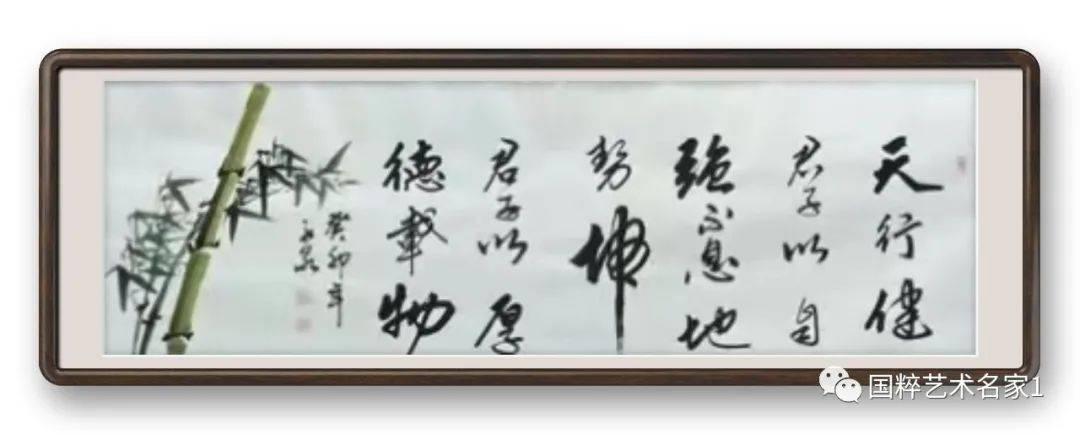 天行健
君子以自
强不息地
势坤
君子以厚
德载物
癸卯年
国粹艺术名家1